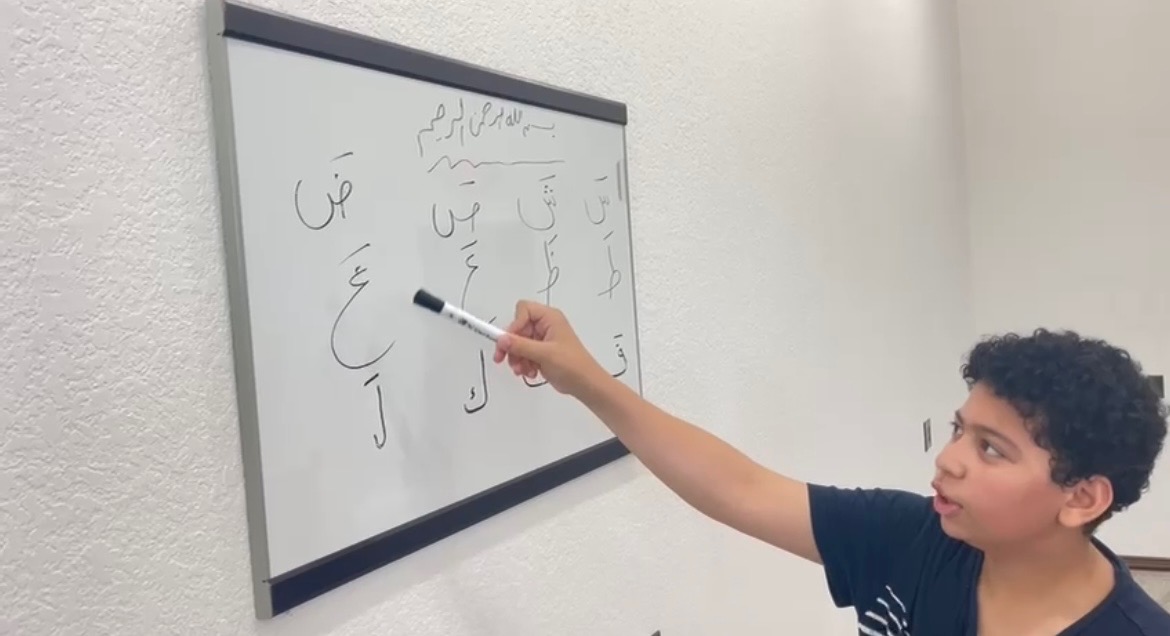 بسم الله الرحمن الرحيم
سَ شَ صَ ضَ
طَ ظَ عَ غَ
فَ كَ لَ